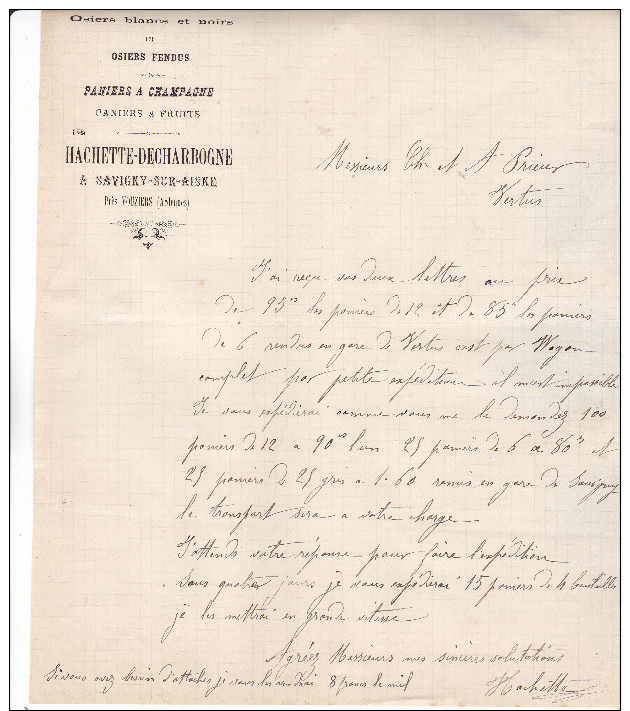 Osiers blancs et noirs
ET
OSIERS FENDUS
PANIERS A CHAMPAGNE
PANIERS A FRUITS
HACHETTE-DECHARBOGNE
A SAVIGNY-SUR-AISNE
Près VOUZIERS (Ardennes)
Messieurs Ch et A Prieur
Vertus
J'ai reçu vos deux lettres au prix
de 95 les paniers de 12 et de 85 les paniers
de 6 rendus en gare de Vertus cest par Wagon
complet par petite expédition il m'est impossible
Je vous expédierai comme vous me le demandez 100
paniers de 12 a 90 l'un 25 paniers de 6 a 80 et
25 paniers de 25 gris a 1.60 remis en gare de Savigny
le transport sera a votre charge
J'attends votre réponse pour faire l'expédition
Sous quatres jours je vous expédierai 15 paniers de 4 bouteilles
je les mettrai en grande vitesse
Agréez Messieurs mes sincères salutations
Hachette
Si vous avez besoin d'attaches je vous les 8 francs le mil